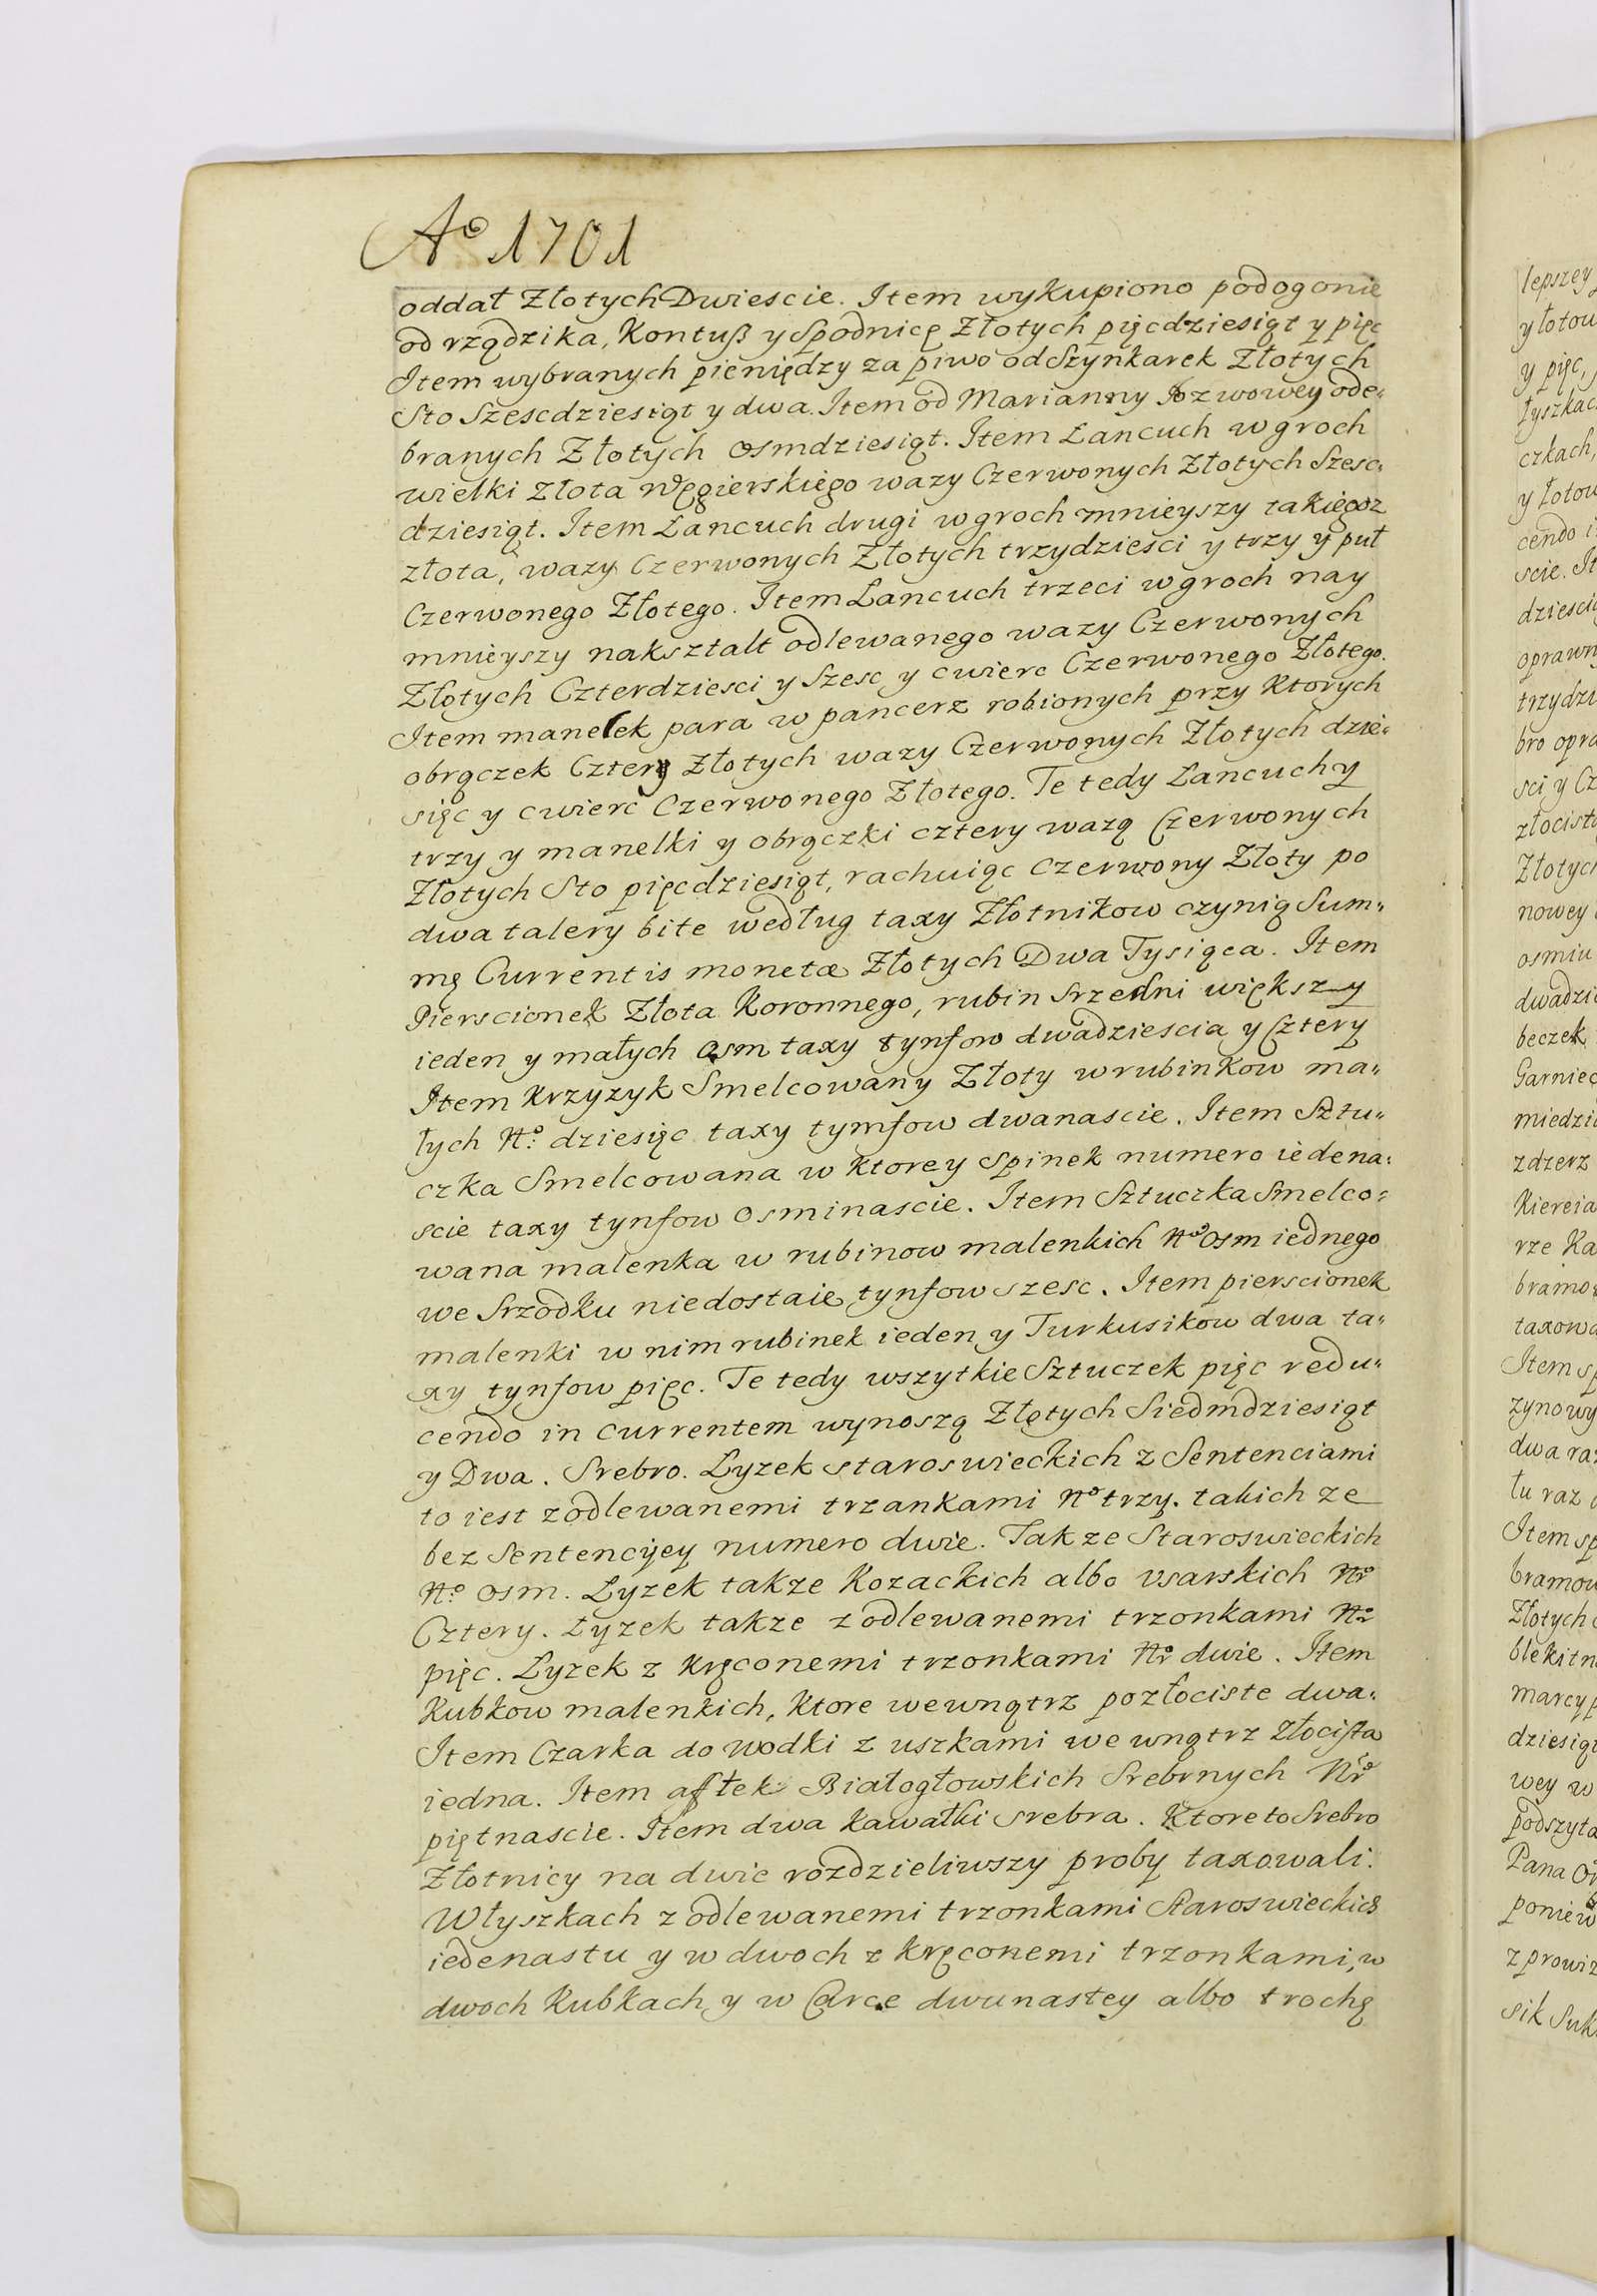 Aº 1701
oddał Złotych Dwiescie. Item wykupiono podogonie
od rządzika, Kontuß y Spodnicę Złotych pięcdziesiąt y pięc
Item wybranych pieniędzy za piwo od Szynkarek Złotych
Sto Szescdziesiąt y dwa. Item od Marianny ode„
branych Złotych osmdziesiąt. Item Łancuch w groch
wielki Złota Węgierskiego wazy Czerwonych Złotych Szesc„
dziesiąt. Item Łancuch drugi w groch mnieyszy takiegoz
złota, wazy Czerwonych Złotych trzydziesci y trzy y puł
Czerwonego Złotego. Item Łancuch trzeci w groch nay
mnieyszy nakształt odlewanego wazy Czerwonych
Złotych Czterdziesci y Szesc y cwierc Czerwonego Złotego.
Item manelek para w pancerz robionych przy Ktorych
obrączek Cztery Złotych wazy Czerwonych Złotych dzie„
sięc y cwierc Czerwonego Złotego. Te tedy Łancuchy
trzy y manelki y obrączki cztery wazą Czerwonych
Złotych Sto pięcdziesiąt, rachuiąc czerwony Złoty po
dwa talery bite według taxy Złotnikow czynią Sum„
mę Currentis monetæ Złotych Dwa Tysiąca. Item
Pierscionek Złota Koronnego, rubin Srzedni większy
ieden y małych osm taxy tynfow dwadziescia y Cztery
Item Krzyzyk Smelcowany Złoty w rubinkow ma„
łych Nº: dziesięc taxy tymfow dwanascie. Item Sztu„
czka Smelcowana w Ktorey Spinek numero iedena„
scie taxy tynfow osminascie. Item Sztuczka Smelco„
wana malenka w rubinow malenkich Nº osm iednego
we Srzodku niedostaie tynfow szesc. Item pierscionek
malenki w nim rubinek ieden y Turkusikow dwa ta„
xy tynfow pięc. Te tedy wszytkie Sztuczek pięc redu„
cendo in currentem wynoszą Złotych Siedmdziesiąt
y Dwa. Srebro. Lyzek staroswieckich z Sentenciami
to iest z odlewanemi trzankami Nº trzy. takich ze
bez Sentencyey numero dwie. Tak ze Staroswieckich
Nº osm. Lyzek takze Kozackich albo Vsarskich Nrº
Cztery. Łyzek takze z odlewanemi trzonkami Nrº
pięc. Lyzek z Kręconemi trzonkami Nrº dwie. Item
Kubkow malenkich, Ktore wewnątrz pozłociste dwa.
Item Czarka do wodki z uszkami we wnątrz Złocista
iedna. Item aftek Białogłowskich Srebrnych Nrº
piętnascie. Item dwa kawałki srebra. Ktore to Srebro
Złotnicy na dwie rozdzieliwszy proby taxowali.
W łyszkach z odlewanemi trzonkami Staroswieckich
iedenastu y w dwoch z kręconemi trzonkami, w
dwoch Kubkach y w Carce dwunastey albo trochę
lepszey
y łotow
y pięc,
łyszkac
czkach,
y łotow
cendo i
scie. It
dziesci
oprawn
trzydzi
bro opra
sci y Cz
złocist
Złotych
nowey
osmiu
dwadzi
beczek
Garniec
miedzi
zdzerz
Kiereia
rze Ka
bramo
taxowa
Item sp
zynowy
dwa raz
łu raz
Item sp
bramow
Złotych
błekitn
marcyp
dziesiąt
wey w
podszyta
Pana
poniew
z prowiz
sik Suk